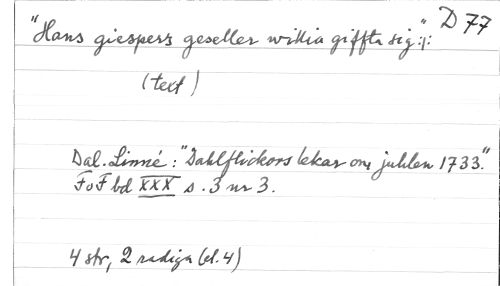 "Hans giespers geseller willia giffta sig:|:" D 77
(text)
Dal. Linné: "Dahlflickors lekar om juhlen 1733."
FoF bd XXX s. 3 nr 3.
4 str, 2 radiga (el. 4)